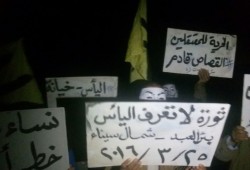 الحرية للمعتقلين
القصاص قادم
اليأس - خيانة
ثورة لا تعرف اليأس
بئر العبد - شمال سيناء
٢٠١٦/٣/٢٥
نساء
خط